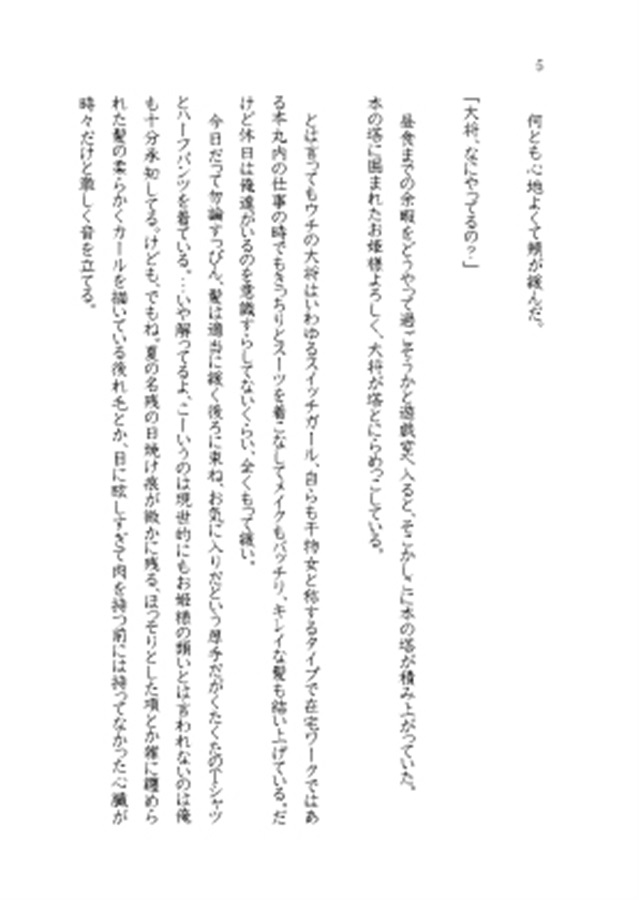 5
何とも心地よくて頬が緩んだ。
「大将、なにやってるの？」
昼食までの余暇をどうやって過ごそうかと遊戯室へ入ると、そこかしこに本の塔が積み上がっていた。
本の塔に囲まれたお姫様よろしく、大将が塔とにらめっこしている。
とは言ってもウチの大将はいわゆるスイッチガール、自らも干物女と称するタイプで在宅ワークではあ
る本丸内の仕事の時でもきっちりとスーツを着こなしてメイクもバッチリ、キレイな髪も結い上げている。だ
けど休日は俺達がいるのを意識すらしてないくらい、全くもって緩い。
今日だって勿論すっぴん、髪は適当に緩く後ろに束ね、お気に入りだという厚手だがくたくたのTシャツ
とハーフパンツを着ている。…いや解ってるよ、こーいうのは現世的にもお姫様の類いとは言われないのは俺
も十分承知してる。けども、でもね。夏の名残の日焼け痕が微かに残る、ほっそりとした項とか雑に纏めら
れた髪の柔らかくカールを描いている後れ毛とか、目に眩しすぎて肉を持つ前には持ってなかった心臓が
時々だけと激しく音を立てる。